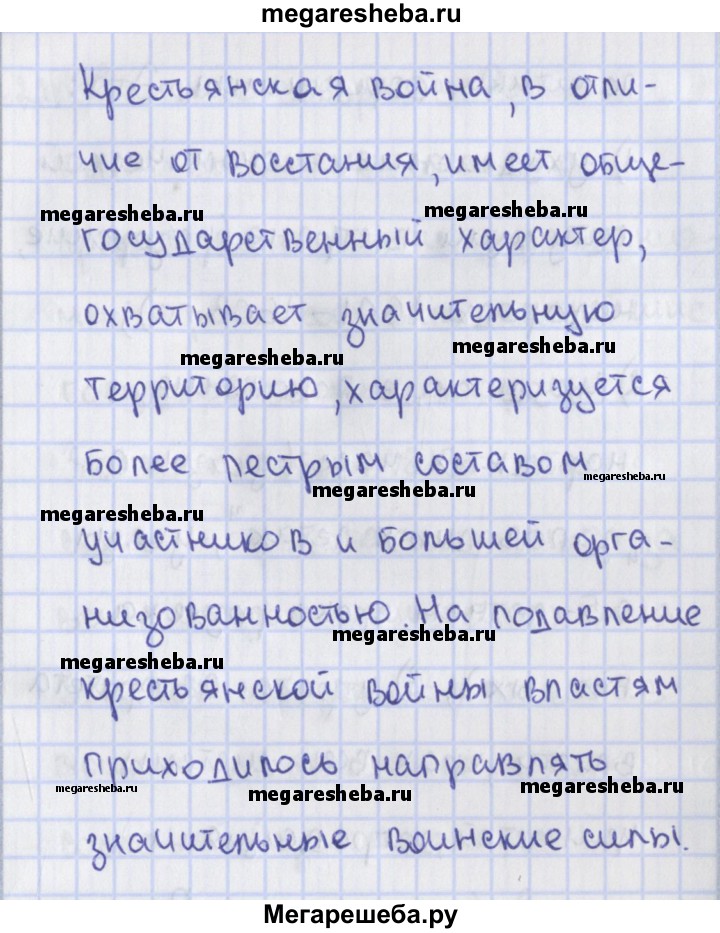 megaresheba.ru
Крестьянская война, в отли-
чие от восстания, имеет обще-
megaresheba.ru megaresheba.ru
государственный характер,
охватывает значительную
megaresheba.ru megaresheba.ru
территорию, характеризуется
более пестрым составом
megaresheba.ru
megaresheba.ru megaresheba.ru
участников и большей орга-
низованностью. На подавление
megaresheba.ru megaresheba.ru
крестьянской войны властям
приходилось направлять
megaresheba.ru megaresheba.ru megaresheba.ru
значительные воинские силы.
Мегарешеба.ру